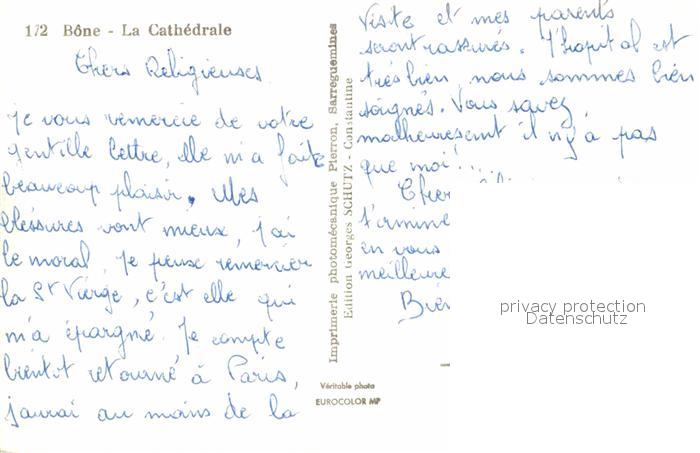 172 Bône - La Cathédrale
Chers Religieuses
Je vous remercie de votre
gentille lettre, Elle m'a faite
beaucoup plaisir. Mes
bléssures vont mieux, j'ai
le moral, Je peuse remercier
la St Vierge, c'est elle qui
m'a épargné. Je compte
bientôt retourné à Paris,
j'aurai au moins de la
visite et mes parents
seront rassurés. L'hopital est
très bien, nous sommes bien
soignés. Vous savez
il n'y a pas
que moi!...
Cher
termine
en vous
meilleure
Bien
Imprimerie photomécanique Pierron, Sarreguemines
Edition Georges SCHUTZ - Constantine
Véritable photo
EUROCOLOR MP
privacy protection
Datenschutz